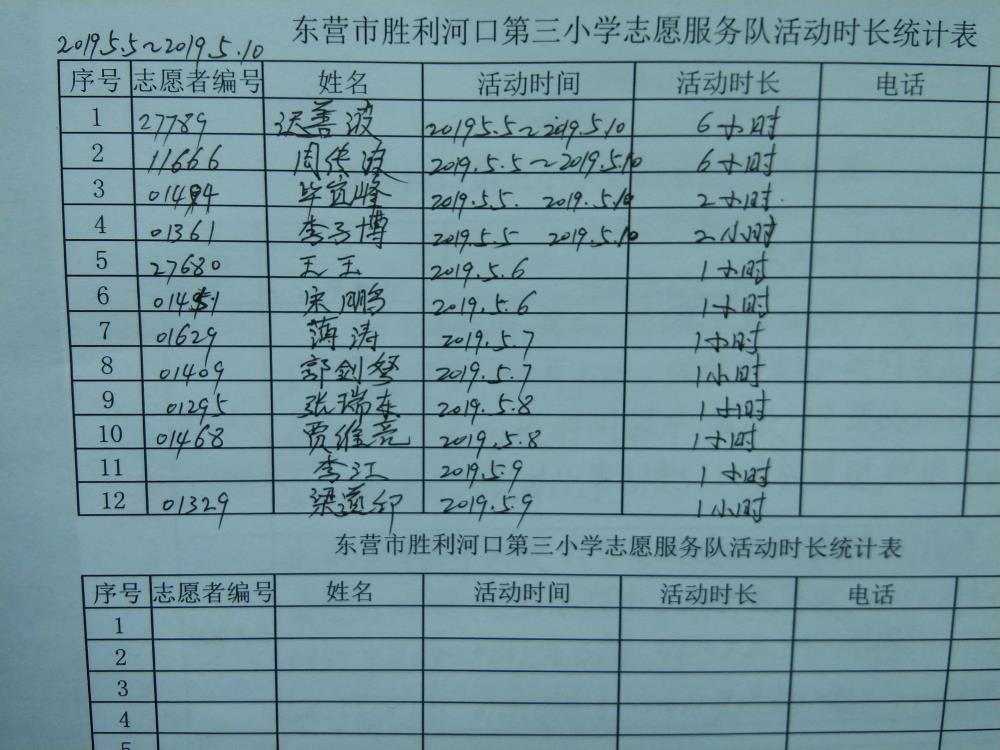 东营市胜利河口第三小学志愿服务队活动时长统计表
2019.5.5~2019.5.10
序号 志愿者编号 姓名 活动时间 活动时长 电话
1 27789 善波 2019.5.5~2019.5.10 6小时
2 11666 周传波 2019.5.5~2019.5.10 6小时
3 毕寅峰 2019.5.5. 2019.5.10 2小时
4 01361 李子博 2019.5.5 2019.5.10 2小时
5 27680 王玉 2019.5.6 1小时
6 宋鹏 2019.5.6 1小时
7 01629 薄涛 2019.5.7 1小时
8 01409 郭剑 2019.5.7 1小时
9 01295 张瑞东 2019.5.8 1小时
10 01468 贾维亮 2019.5.8 1小时
11 李江 2019.5.9 1小时
12 01329 梁 2019.5.9 1小时
东营市胜利河口第三小学志愿服务队活动时长统计表
序号 志愿者编号 姓名 活动时间 活动时长 电话
1
2
3
4
5